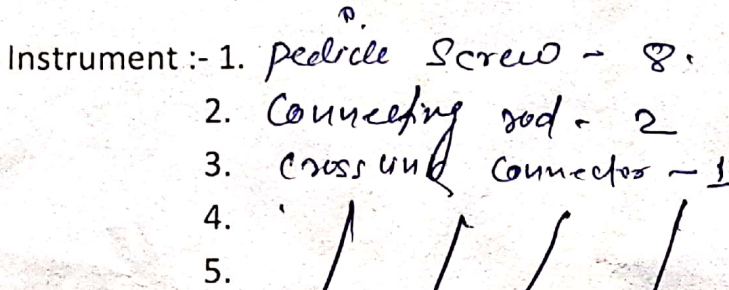 Instrument :- 1. Pedicle Screw - 8.
2. Connecting rod - 2
3. Cross link Connector - 1
4.
5.